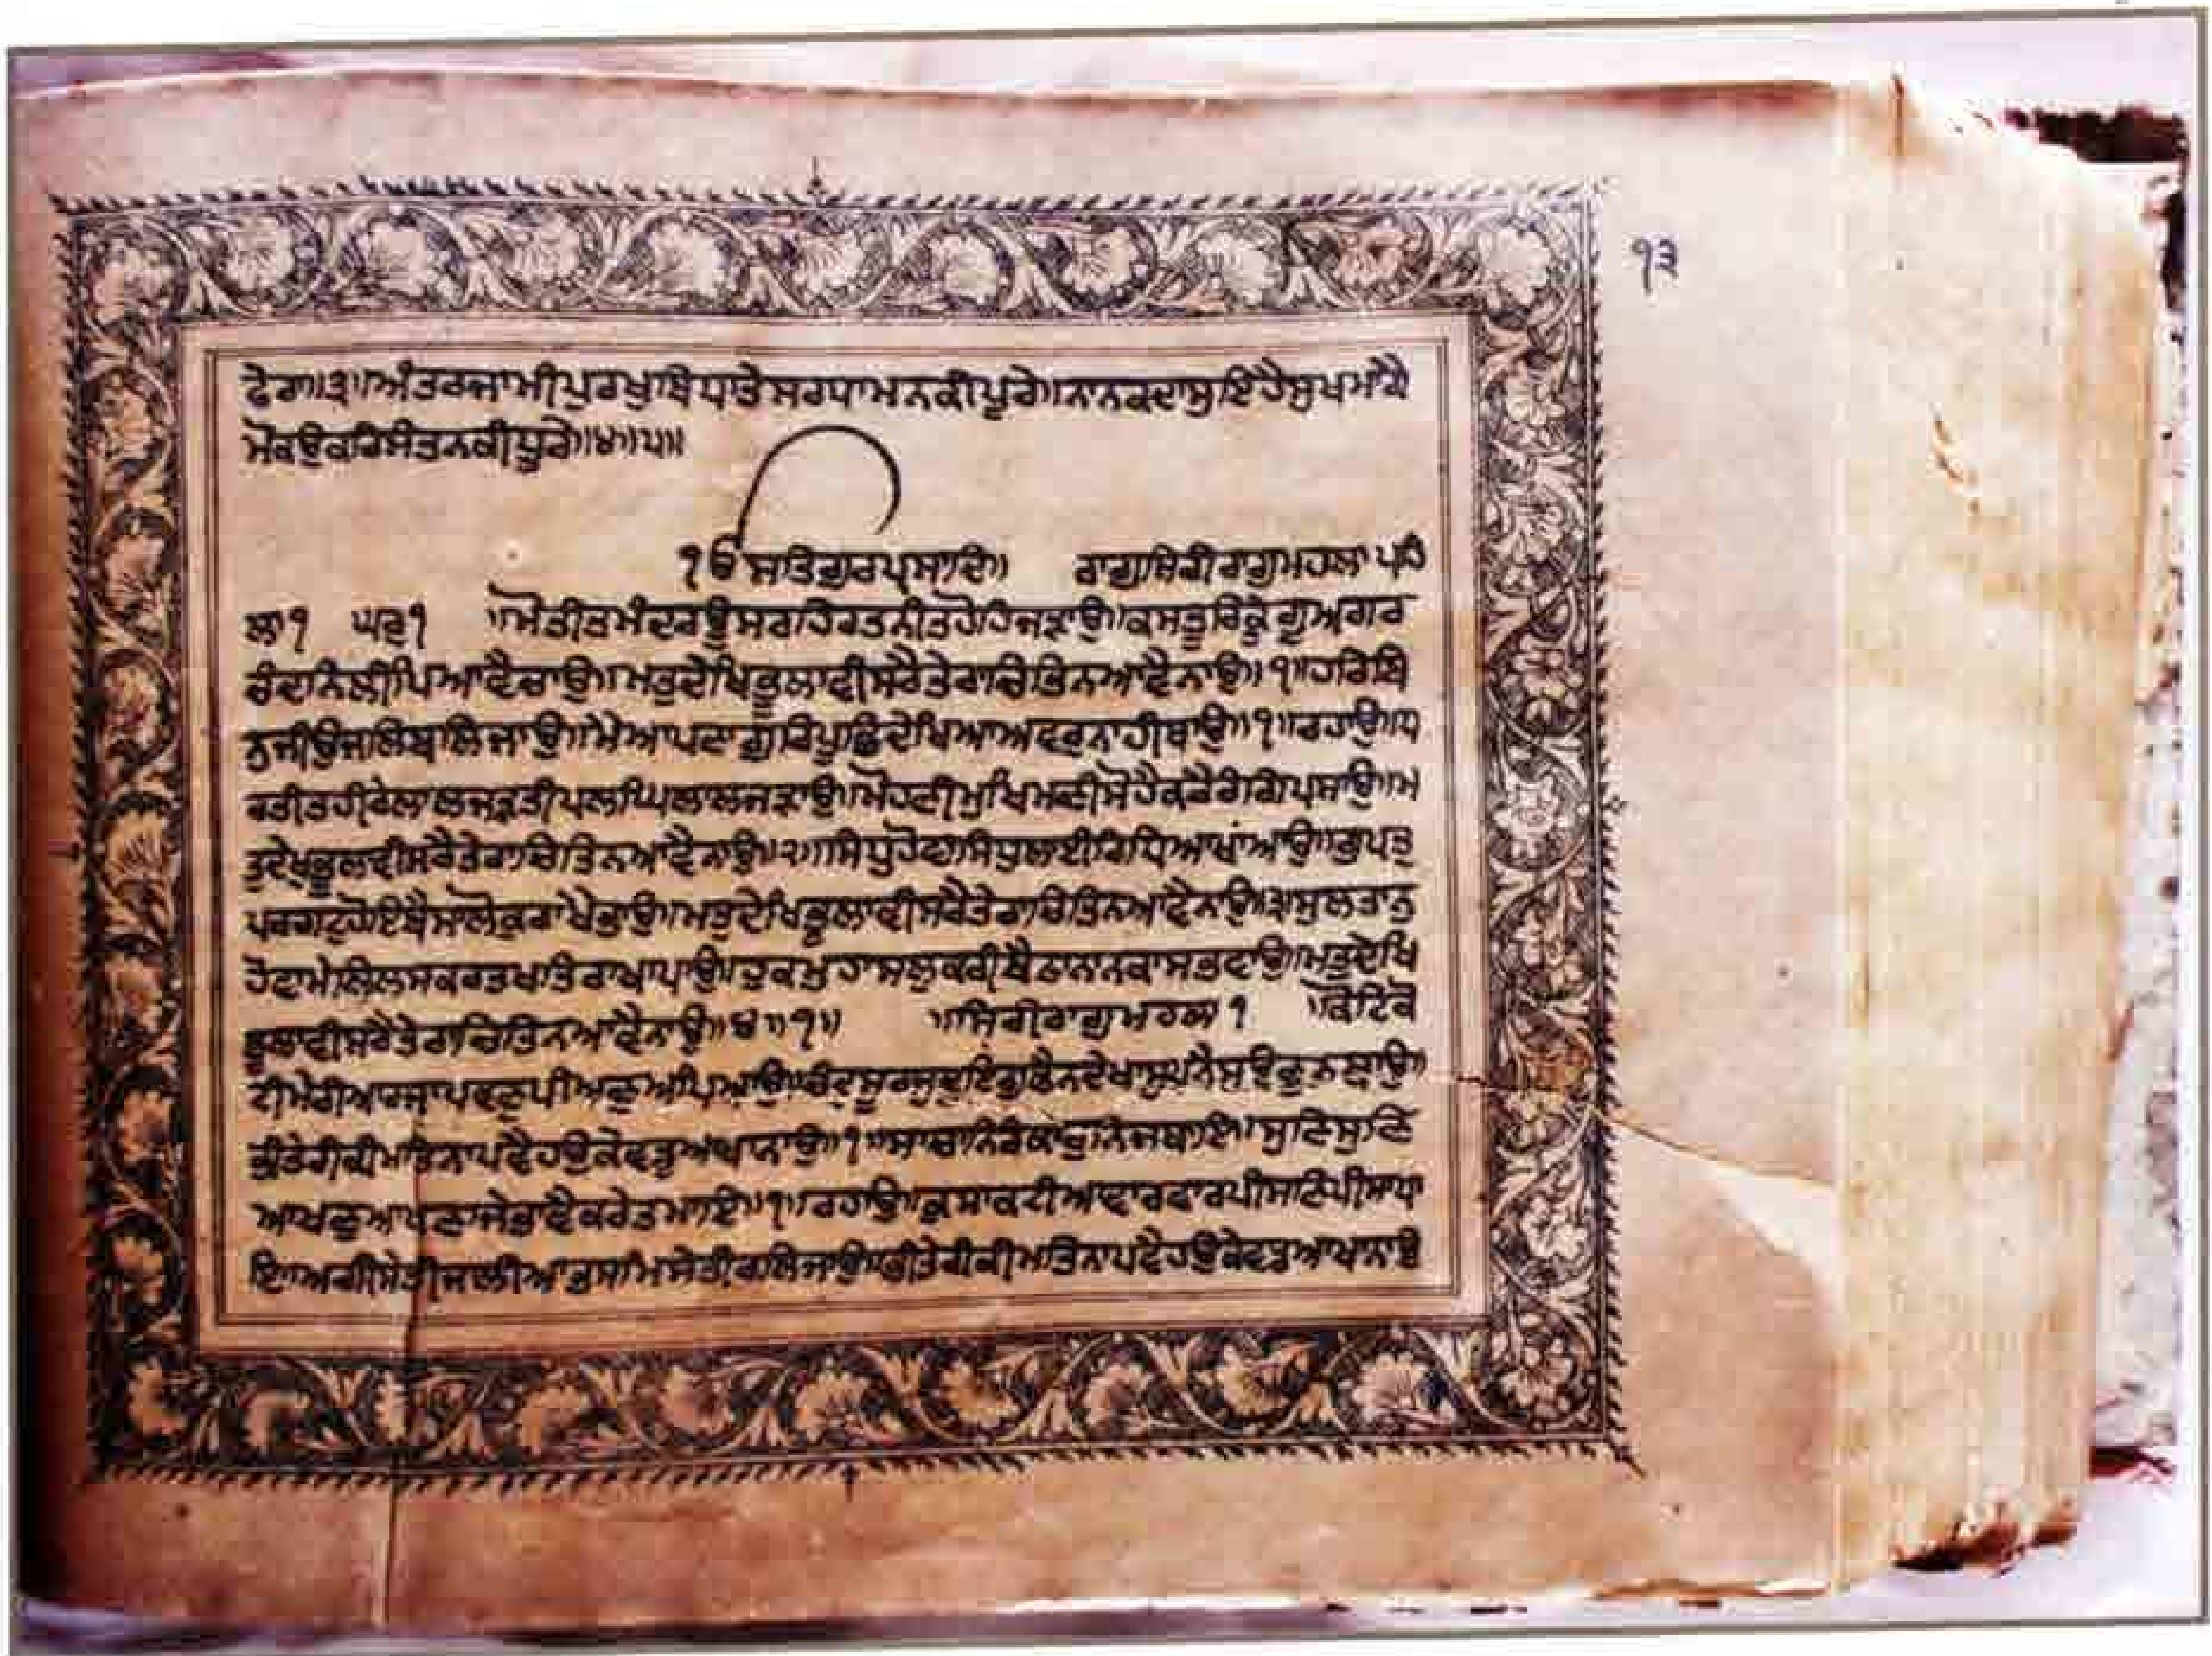 ੧੩
ਫੇਰਾ॥੩॥ਅੰਤਰਜਾਮੀਪੁਰਖੁਬਿਧਾਤੇਸਰਧਾਮਨਕੀਪੂਰੇ॥ਨਾਨਕਦਾਸੁਇਹੈਸੁਖਮਾਂਗੈ
ਮੋਕਉਕਰਿਸੰਤਨਕੀਧੂਰੇ॥੪॥੫॥
ੴਸਤਿਗੁਰਪ੍ਰਸਾਦਿ॥ ਰਾਗੁਸਿਰੀਰਾਗੁਮਹਲਾਪਹਿ
ਲਾ੧ ਘਰੁ੧ ॥ਮੋਤੀਤਮੰਦਰਊਸਰਹਿਰਤਨੀਤਹੋਹਿਜੜਾਉ॥ਕਸਤੂਰਿਕੁੰਗੂਅਗਰ
ਚੰਦਨਿਲੀਪਿਆਵੈਚਾਉ॥ਮਤੁਦੇਖਿਭੂਲਾਵੀਸਰੈਤੇਰਾਚਿਤਿਨਆਵੈਨਾਉ॥੧॥ਹਰਿਬਿ
ਨੁਜੀਉਜਲਿਬਲਿਜਾਉ॥ਮੈਆਪਣਾਗੁਰਿਪੂਛਿਦੇਖਿਆਅਵਰੁਨਾਹੀਥਾਉ॥੧॥ਰਹਾਉ॥ਧ
ਰਤੀਤਹੀਰੇਲਾਲਜੜਤੀਪਲਘਿਲਾਲਜੜਾਉ॥ਮੋਹਣੀਮੁਖਿਮਣੀਸੋਹੈਕਰੈਰੰਗਿਪਸਾਉ॥ਮ
ਤੁਦੇਖੁਭੂਲਾਵੀਸਰੈਤੇਰਾਚਿਤਿਨਆਵੈਨਾਉ॥੨॥ਸਿਧੁਹੋਵਾਸਿਧੁਲਾਈਰਿਧਿਆਖਾਂਆਉ॥ਗੁਪਤੁ
ਪਰਗਟੁਹੋਇਬੈਸਾਲੋਕੁਰਾਖੈਭਾਉ॥ਮਤੁਦੇਖਿਭੂਲਾਵੀਸਰੈਤੇਰਾਚਿਤਿਨਆਵੈਨਾਉ॥੩॥ਸੁਲਤਾਨੁ
ਹੋਵਾਮੇਲਿਲਸਕਰਤਖਤਿਰਾਖਾਪਾਉ॥ਹੁਕਮੁਹਾਸਲੁਕਰੀਬੈਠਾਨਾਨਕਾਸਭਵਾਉ॥ਮਤੁਦੇਖਿ
ਭੂਲਾਵੀਸਰੈਤੇਰਾਚਿਤਿਨਆਵੈਨਾਉ॥੪॥੧॥ ॥ਸਿਰੀਰਾਗੁਮਹਲਾ੧ ॥ਕੋਟਿਕੋ
ਟੀਮੇਰੀਆਰਜਾਪਵਣੁਪੀਅਣੁਅਪਿਆਉ॥ਚੰਦੁਸੂਰਜੁਦੁਇਗੁਫੈਨਦੇਖਾਸੁਪਨੈਸਉਣਨਥਾਉ॥
ਭੀਤੇਰੀਕੀਮਤਿਨਾਪਵੈਹਉਕੇਵਡੁਆਖਾਨਾਉ॥੧॥ਸਾਚਾਨਿਰੰਕਾਰੁਨਿਜਥਾਇ॥ਸੁਣਿਸੁਣਿ
ਆਖਣੁਆਖਣਾਜੇਭਾਵੈਕਰੇਤਮਾਇ॥੧॥ਰਹਾਉ॥ਕੁਸਾਕਟੀਆਵਾਰਵਾਰਪੀਸਣਿਪੀਸਾਪਾ
ਇ॥ਅਗੀਸੇਤੀਜਾਲੀਆਭਸਮਸੇਤੀਰਲਿਜਾਉ॥ਭੀਤੇਰੀਕੀਮਤਿਨਾਪਵੈਹਉਕੇਵਡੁਆਖਾਨਾਉ